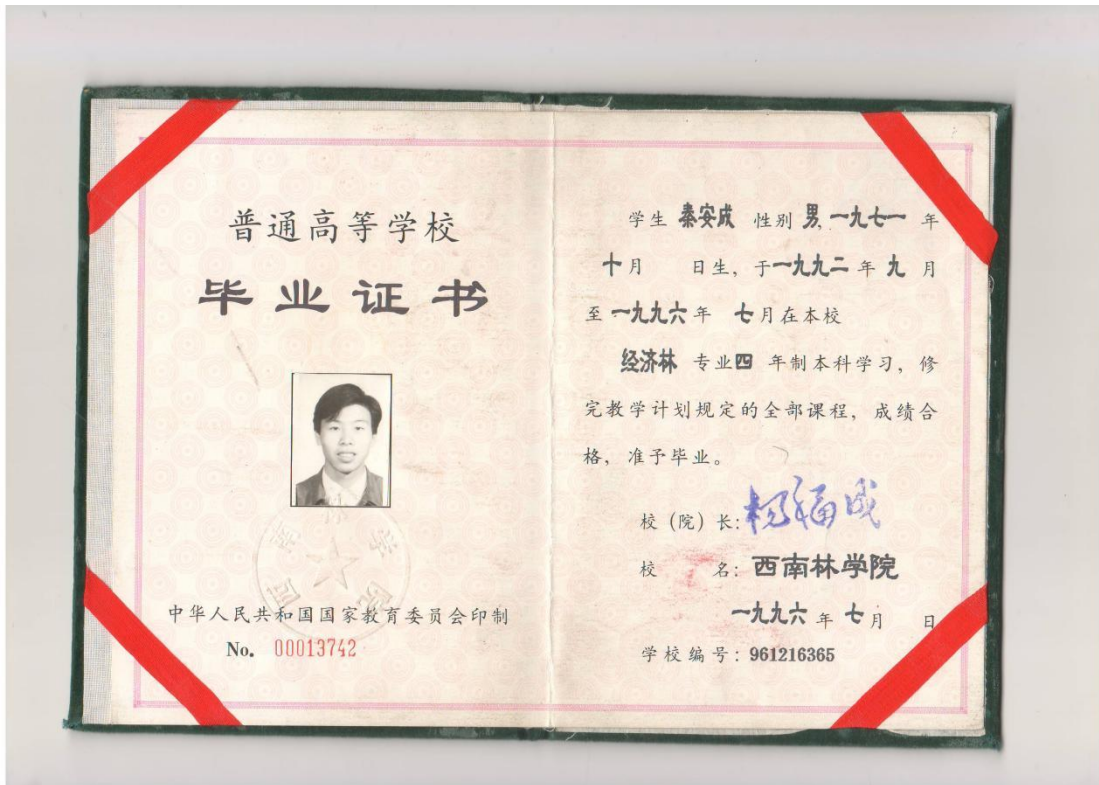 普通高等学校
毕业证书
中华人民共和国国家教育委员会印制
No. 00013742
学生 秦安成 性别 男, 一九七一 年
十月 日生, 于一九九二 年 九 月
至 一九九六 年 七月在本校
经济林 专业四 年制本科学习, 修
完教学计划规定的全部课程, 成绩合
格, 准予毕业。
校 (院) 长: 杨福成
校 名: 西南林学院
一九九六 年 七月 日
学校编号: 961216365
西南林学院